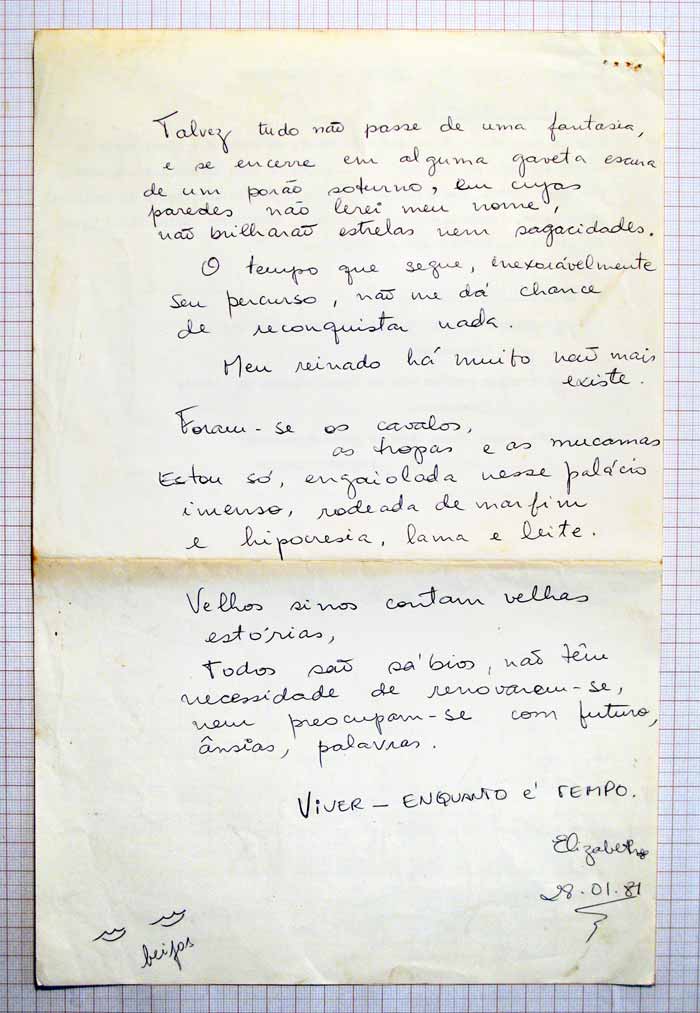 Talvez tudo não passe de uma fantasia,
e se encerre em alguma gaveta escura
de um porão soturno, em cujas
paredes não lerei meu nome,
não brilharão estrelas nem sagacidades.
O tempo que segue, inexorávelmente
seu percurso, não me dá chance
de reconquistar nada.
Meu reinado há muito não mais
existe.
Foram-se os cavalos,
as tropas e as mucamas
Estou só, engaiolada nesse palácio
imenso, rodeada de marfim
e hipocresia, lama e leite.
Velhos sinos contam velhas
estórias,
Todos são sábios, não têm
necessidade de renovarem-se,
nem preocupam-se com futuro,
ânsias, palavras.
VIVER — ENQUANTO É TEMPO.
Elizabeth
28.01.81
beijos